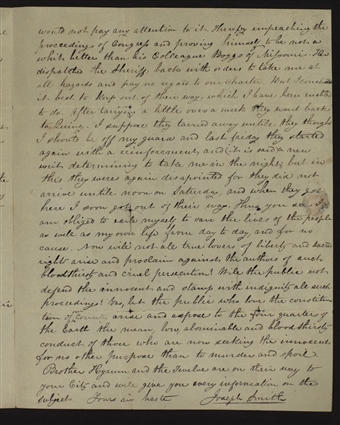 would not pay any attention to it. Thereby impeaching the
proceedings of Congress and proving himself to be not a
whit better than his Colleague Boggs of Missouri. He
dispatched the Sheriff back with orders to take me at
all hazards and pay no regard to our Charter. But I considered
it best to keep out of their way, which I have been enabled
to do. After tarrying a little over a week they went back
to Quincy. I suppose they tarried away untill they thought
I should be off my guard and last friday they started
again with a reinforcement, and it is said a new
with determining to take me in the night, but in
this they were again disapointed for they did not
arrive untill noon on Saturday, and when they got
here I soon got out of their way. Thus you see I
am obliged to exile myself to save the lives of the people
as well as my own life from day to day and for no
cause. Now will not all true lovers of liberty and
rights arise and proclaim against the authors of such
bloodthirsty and cruel persecution! Will the public not
defend the innocent and stamp with indignity all such
proceedings! Yes, let the public who love the constitu
tion of Country arise and expose to the four quarters of
the Earth the mean, low, abominable and bloodthirsty
conduct of those who are now seeking the innocent
for no other purpose than to murder and spoil.
Brother Hyrum and the Twelve are on their way to
your City and will give you every information on the
subject. Yours in haste Joseph Smith